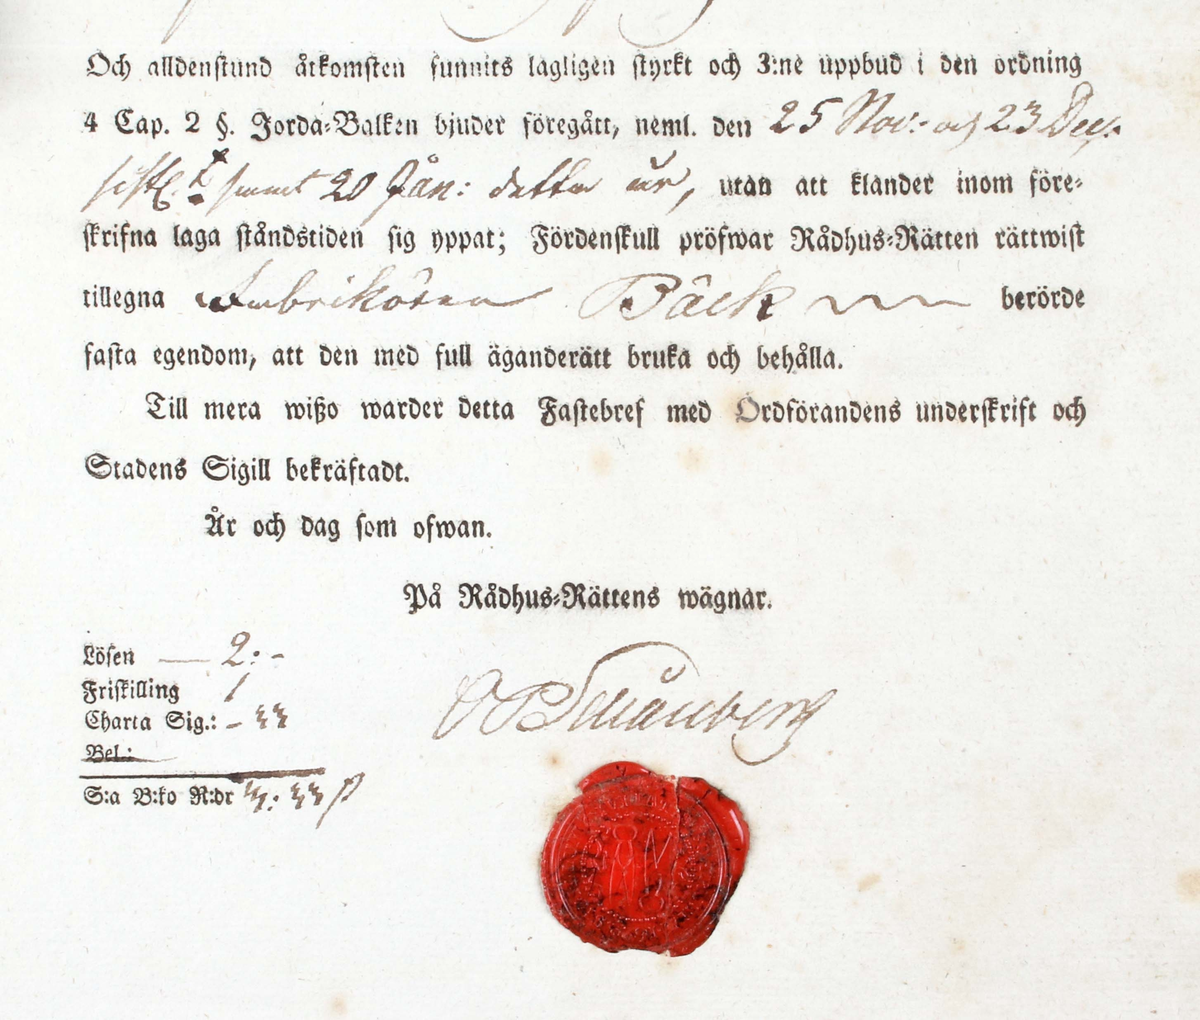 Och alldenstund åtkomsten funnits lagligen styrkt och 3:ne uppbud i den ordning
4 Cap. 2 §. Jorda-Balken bjuder föregått, neml. den 25 Nov: och 23 Dec:
sistl. samt 20 Jan: detta år, utan att klander inom före-
skrifna laga ståndstiden sig yppat; Fördenskull pröfwar Rådhus-Rätten rättwist
tillegna Fabrikören Bäck berörde
fasta egendom, att den med full äganderätt bruka och behålla.
Till mera wißo warder detta Fastebref med Ordförandens underskrift och
Stadens Sigill bekräftadt.
År och dag som ofwan.
På Rådhus-Rättens wägnar.
Lösen — 2: -
Friskilling 1
Charta Sig.: -
Bel.:
S:a B:ko R:dr